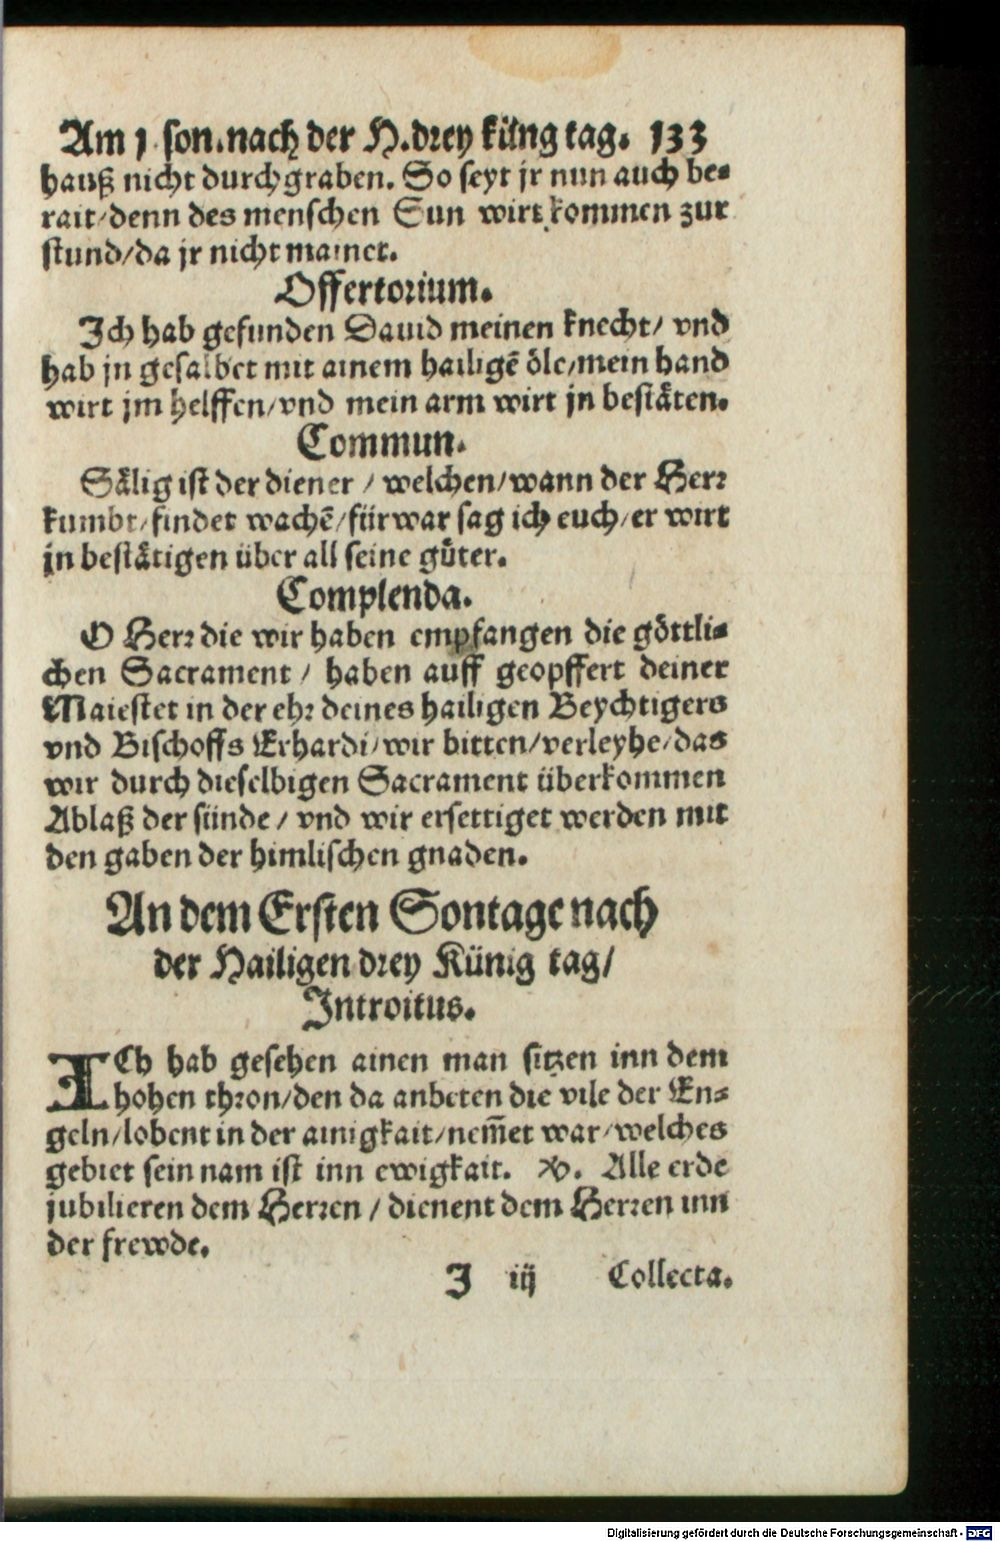 Am 1. son. nach der H. drey küng tag. 133
hauß nicht durchgraben. So seyt jr nun auch be⸗
rait/denn des menschen Sun wirt kommen zur
stund/da jr nicht mainet.
Offertorium.
Ich hab gefunden Dauid meinen knecht/ vnd
hab jn gesalbet mit ainem hailigē öle/mein hand
wirt jm helffen/vnd mein arm wirt jn bestäten.
Commun.
Sälig ist der diener / welchen/wann der Herr
kumbt/findet wachē/fürwar sag ich euch/er wirt
jn bestätigen über all seine güter.
Complenda.
O Herr die wir haben empfangen die göttli⸗
chen Sacrament / haben auff geopffert deiner
Maiestet in der ehr deines hailigen Beychtigers
vnd Bischoffs Erhardi/wir bitten/verleyhe/das
wir durch dieselbigen Sacrament überkommen
Ablaß der sünde / vnd wir ersettiget werden mit
den gaben der himlischen gnaden.
An dem Ersten Sontage nach
der Hailigen drey Künig tag/
Introitus.
ICh hab gesehen ainen man sitzen inn dem
hohen thron/den da anbeten die vile der En⸗
geln/lobent in der ainigkait/nem̄et war/welches
gebiet sein nam ist inn ewigkait. ℣. Alle erde
jubilieren dem Herren / dienent dem Herren inn
der frewde.
J iij Collecta.
Digitalisierung gefördert durch die Deutsche Forschungsgemeinschaft - DFG